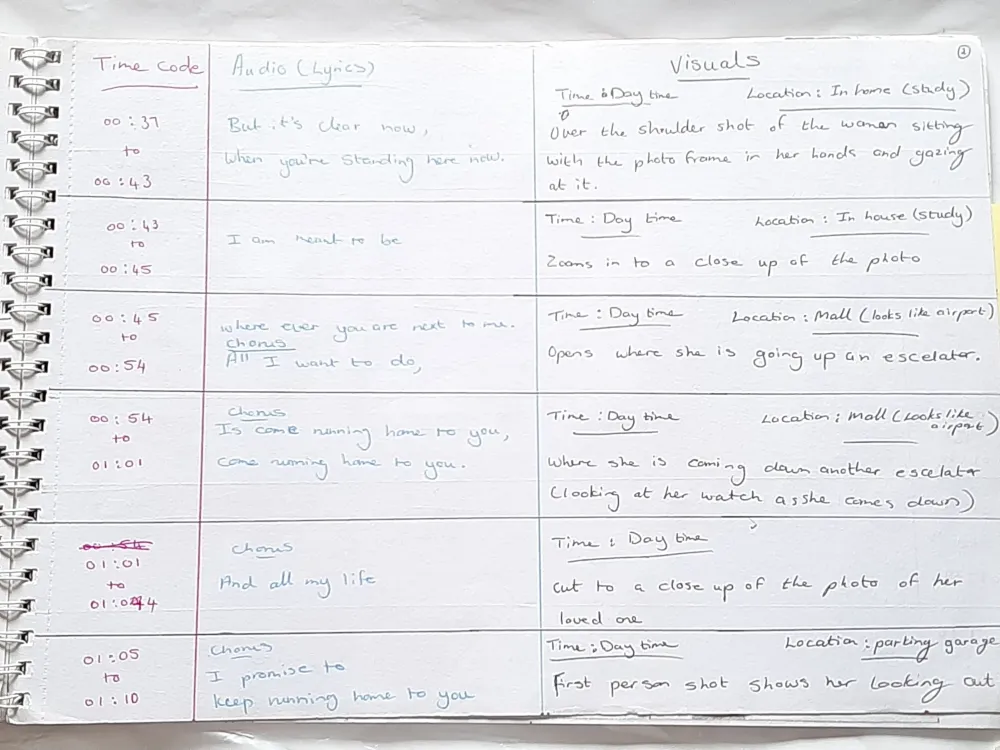 ①
Time Code
Audio (Lyrics)
Visuals
Time : Day time Location : In home (study)
00 : 37
to
00 : 43
But it's clear now,
When you're standing here now.
Over the shoulder shot of the woman sitting
with the photo frame in her hands and gazing
at it.
00 : 43
to
00 : 45
I am meant to be
Time : Day time Location : In house (study)
Zooms in to a close up of the photo
00 : 45
to
00 : 54
where ever you are next to me.
chorus
All I want to do,
Time : Day time Location : Mall (looks like airport)
Opens where she is going up an escelator.
00 : 54
to
01 : 01
Chorus
Is come running home to you,
come running home to you.
Time : Day time Location : Mall (Looks like
airport)
where she is coming down another escelator
(looking at her watch as she comes down)
00 : 54
01 : 01
to
01 : 04
chorus
And all my life
Time : Day time
cut to a close up of the photo of her
loved one
01 : 05
to
01 : 10
Chorus
I promise to
keep running home to you
Time : Day time Location : parking garage
First person shot shows her looking out